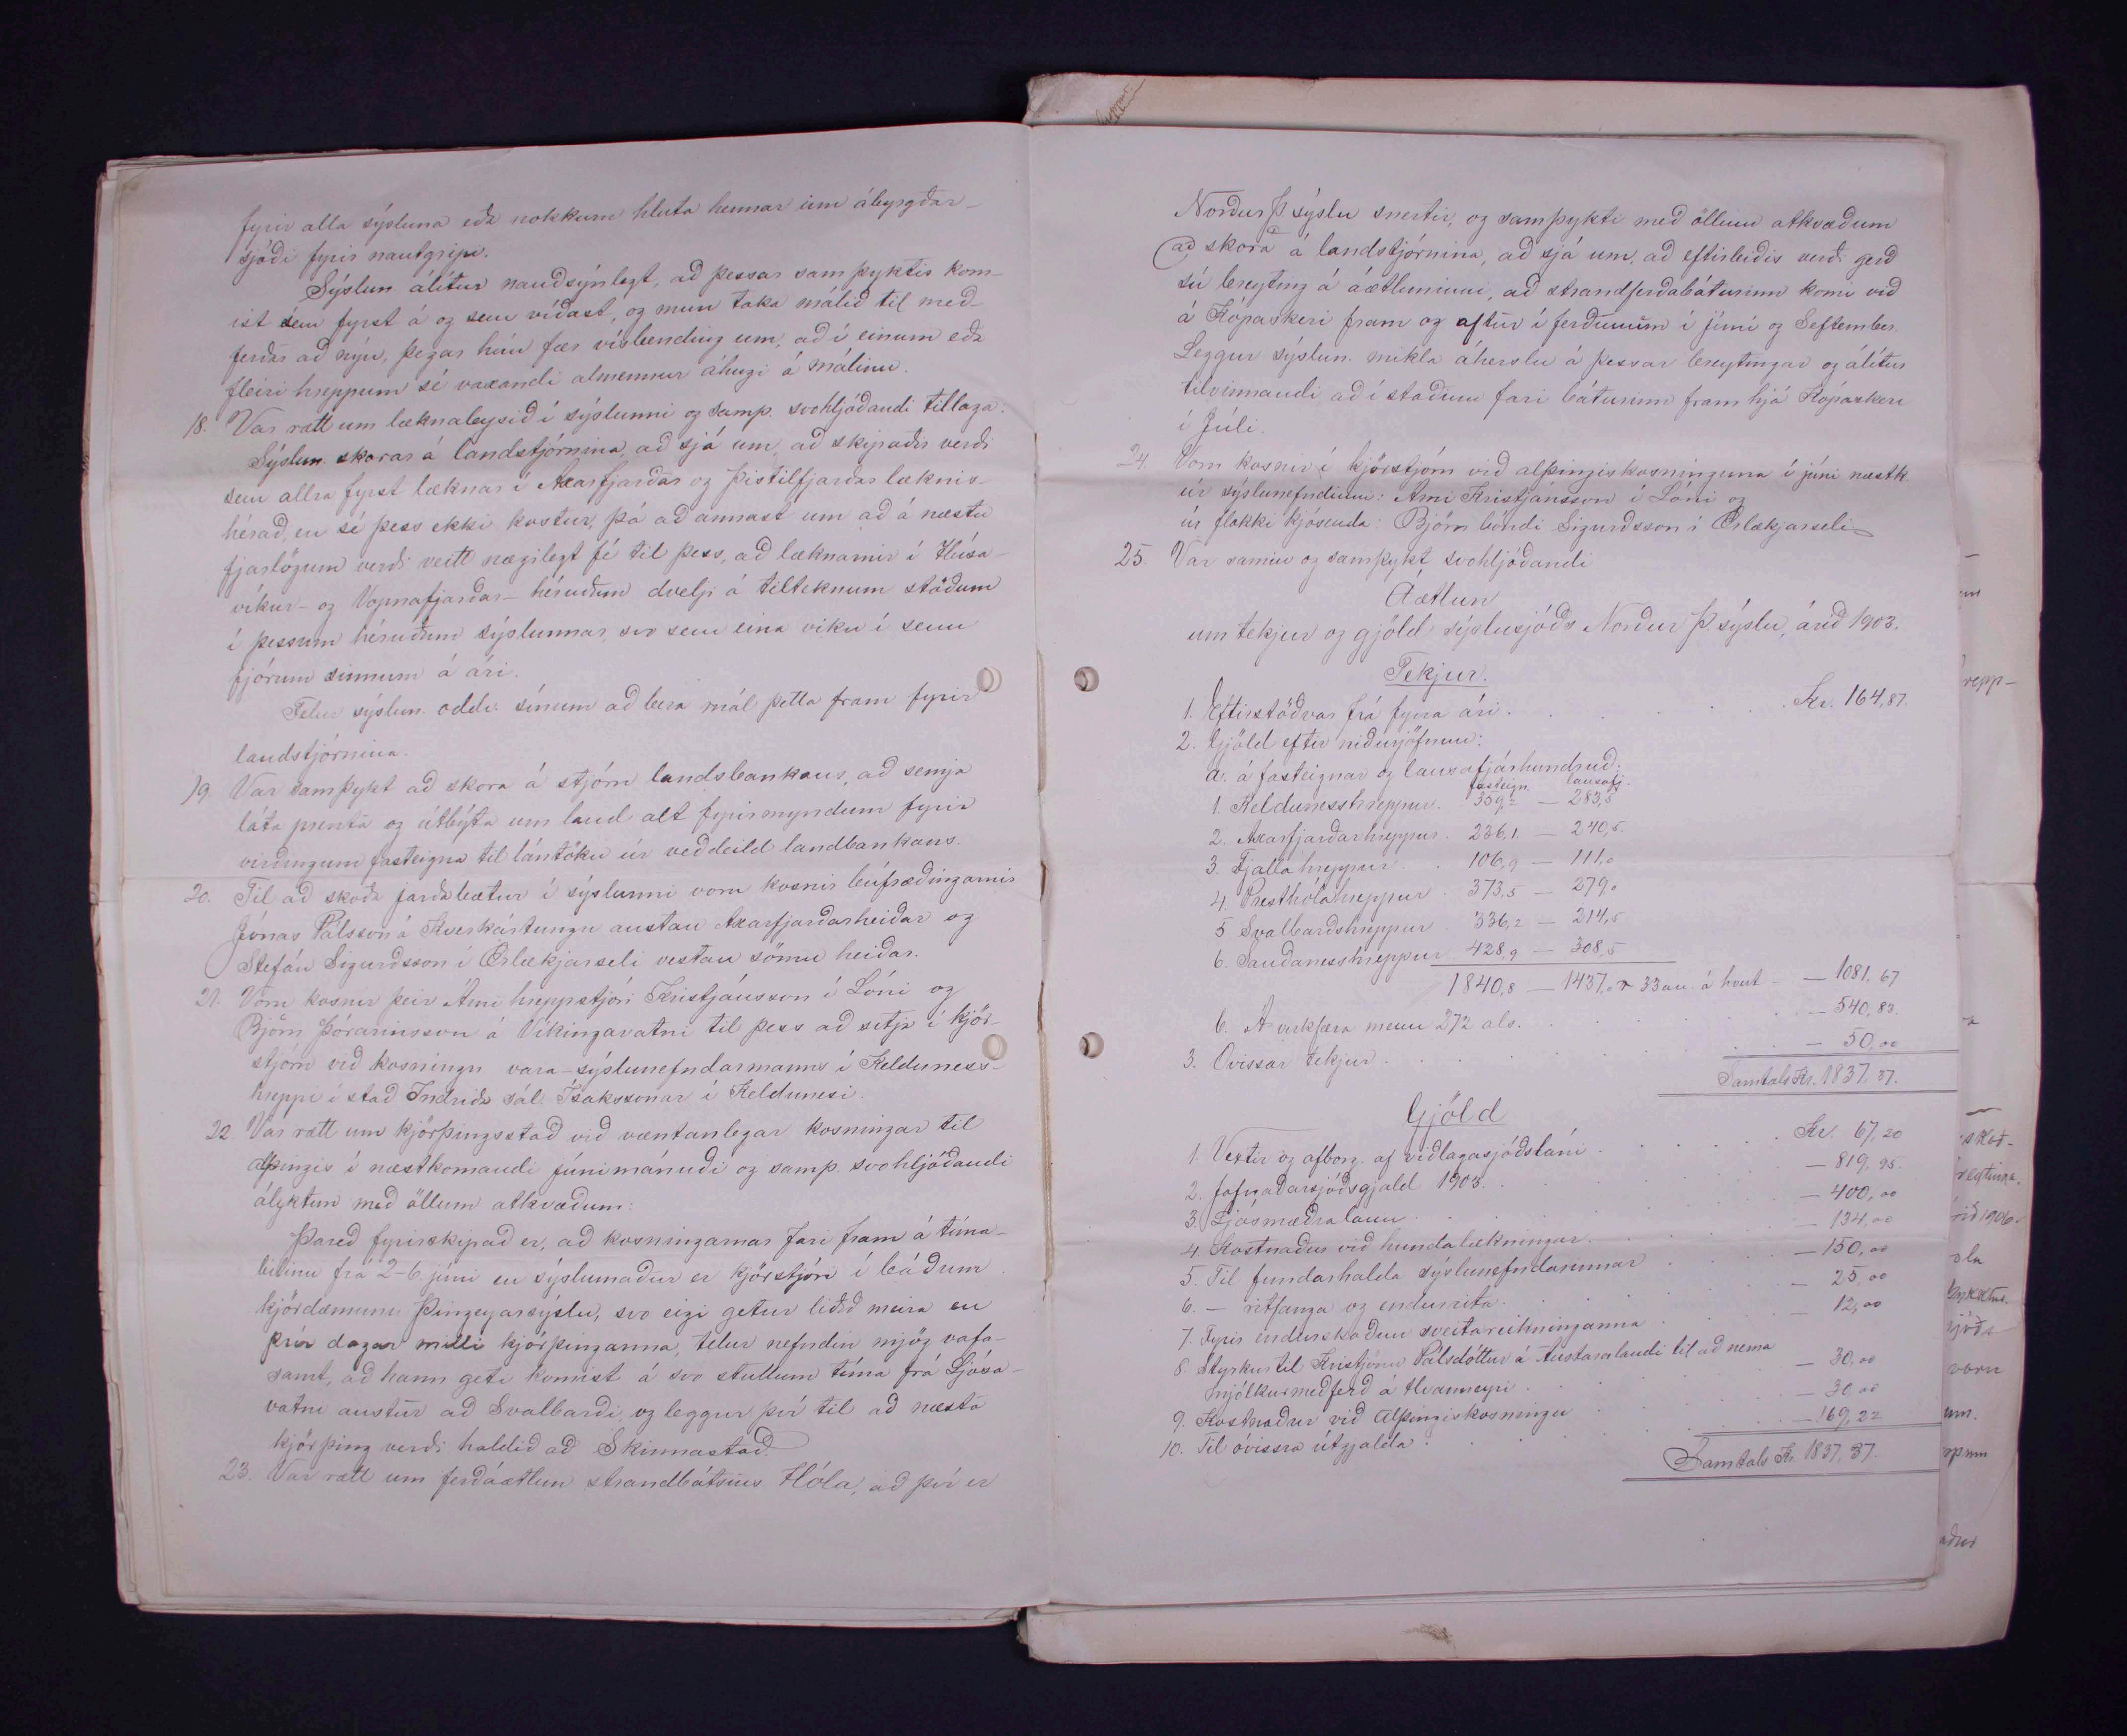 fyrir alla sýsluna eða nokkurn hluta hennar um ábyrgðar-
sjóði fyrir nautgripi.
Sýslun. álítur nauðsýnlegt, að þessar samþyktir kom-
ist sem fyrst á og sem víðast, og mun taka málið til með-
ferðar að nýu, þegar hún fær vísbending um, að í einum eða
fleiri hreppum sé vaxandi almennur áhugi á málinu.
18. Var rætt um læknaleysið í sýslunni og samþ. svohljóðandi tillaga:
Sýslun. skorar á landstjórnina, að sjá um, að skipaðir verði
sem allra fyrst læknar í Axarfjarðar og Þistilfjarðar læknis-
hérað, en sé þess ekki kostur, þá að annast um að á næstu
fjárlögum verði veitt nægilegt fé til þess, að læknarnir í Húsa-
víkur- og Vopnafjarðar-héruðum dvelji á tilteknum stöðum
í þessum héruðum sýslunnar, svo sem eina viku í senn
fjórum sinnum á ári.
Felur sýslun. oddv. sínum að bera mál þetta fram fyrir
landstjórnina.
19. Var samþykt að skora á stjórn landsbankans, að semja
láta prenta og útbýta um land alt fyrirmyndum fyrir
virðingum fasteigna til lántöku úr veðdeild landbankans.
20. Til að skoða jarðabætur í sýslunni voru kosnir búfræðingarnir
Jónas Pálsson á Kverkártungu austan Axarfjarðarheiðar og
Stefán Sigurðsson í Ærlækjarseli vestan sömu heiðar.
21. Voru kosnir þeir Árni hreppstjóri Kristjánsson í Lóni og
Björn Þórarinsson á Víkingavatni til þess að sitja í kjör-
stjórn við kosningu vara-sýslunefndarmanns í Kelduness-
hreppi í stað Indriða sál. Ísakssonar í Keldunesi.
22. Var rætt um kjörþingsstað við væntanlegar kosningar til
alþingis í næstkomandi júnímánuði og samþ. svohljóðandi
ályktun með öllum atkvæðum:
Þareð fyrirskipað er, að kosningarnar fari fram á tíma-
bilinu frá 2-6. júní en sýslumaður er kjörstjóri í báðum
kjördæmum Þingeyarsýslu, svo eigi getur liðið meira en
þrír dagar milli kjörþinganna, telur nefndin mjög vafa-
samt, að hann geti komist á svo stuttum tíma frá Ljósa-
vatni austur að Svalbarði, og leggur því til að næsta
kjörþing verði haldið að Skinnastað.
23. Var rætt um ferðaáætlun strandbátsins Hóla, að því er
Norður Þ. sýslu snertir, og samþykti með öllum atkvæðum
að skora á landstjórnina, að sjá um, að eftirleiðis verði gerð
sú breyting á áætluninni, að strandferðabáturinn komi við
á Kópaskeri fram og aftur í ferðunum í júní og September.
Leggur sýslun. mikla áherslu á þessar breytingar og álítur
tilvinnandi að í staðinn fari báturinn fram hjá Kópaskeri
í Júlí.
24. Voru kosnir í kjörstjórn við alþingiskosninguna í júní næstk.
úr sýslunefndinni: Árni Kristjánsson í Lóni og
úr flokki kjósenda: Björn bóndi Sigurðsson í Ærlækjarseli
25. Var samin og samþykt svohljóðandi
Áætlun
um tekjur og gjöld sýslusjóðs Norður Þ. sýslu, árið 1903.
Tekjur.
1. Eftirstöðvar frá fyrra ári. Kr. 164,87.
2. Gjöld eftir niðurjöfnun:
a. á fasteignar og lausafjárhundruð:
fasteign. lausafj.
1. Keldunesshreppur. 359,2 — 283,5
2. Axarfjarðarhreppur. 236,1 — 240,5.
3. Fjallahreppur. 106,9 — 111,0
4. Presthólahreppur. 373,5 — 279,0
5. Svalbarðshreppur. 336,2 — 214,5
6. Sauðanesshreppur. 428,9 — 308,5
1840,8 — 1437,0 33 au. á hvert — 1081,67
b. Á verkfæra menn 272 als. — 540,83.
3. Óvissar tekjur. — 50,00
Samtals Kr. 1837,37.
Gjöld
1. Vextir og afborg. af viðlagasjóðsláni. Kr. 67,20
2. Jafnaðarsjóðsgjald 1903. — 819,95.
3. Ljósmæðralaun. — 400,00
4. Kostnaður við hundalækningar. — 134,00
5. Til fundarhalda sýslunefndarinnar — 150,00
6. — ritfanga og endurrita. — 25,00
7. Fyrir endurskoðun sveitareikninganna — 12,00
8. Styrkur til Kristjönu Pálsdóttur á Austaralandi til að nema
mjólkurmeðferð á Hvanneyri. — 30,00
9. Kostnaður við Alþingiskosningu — 30,00
10. Til óvissra útgjalda. — 169,22
Samtals Kr. 1837,37.